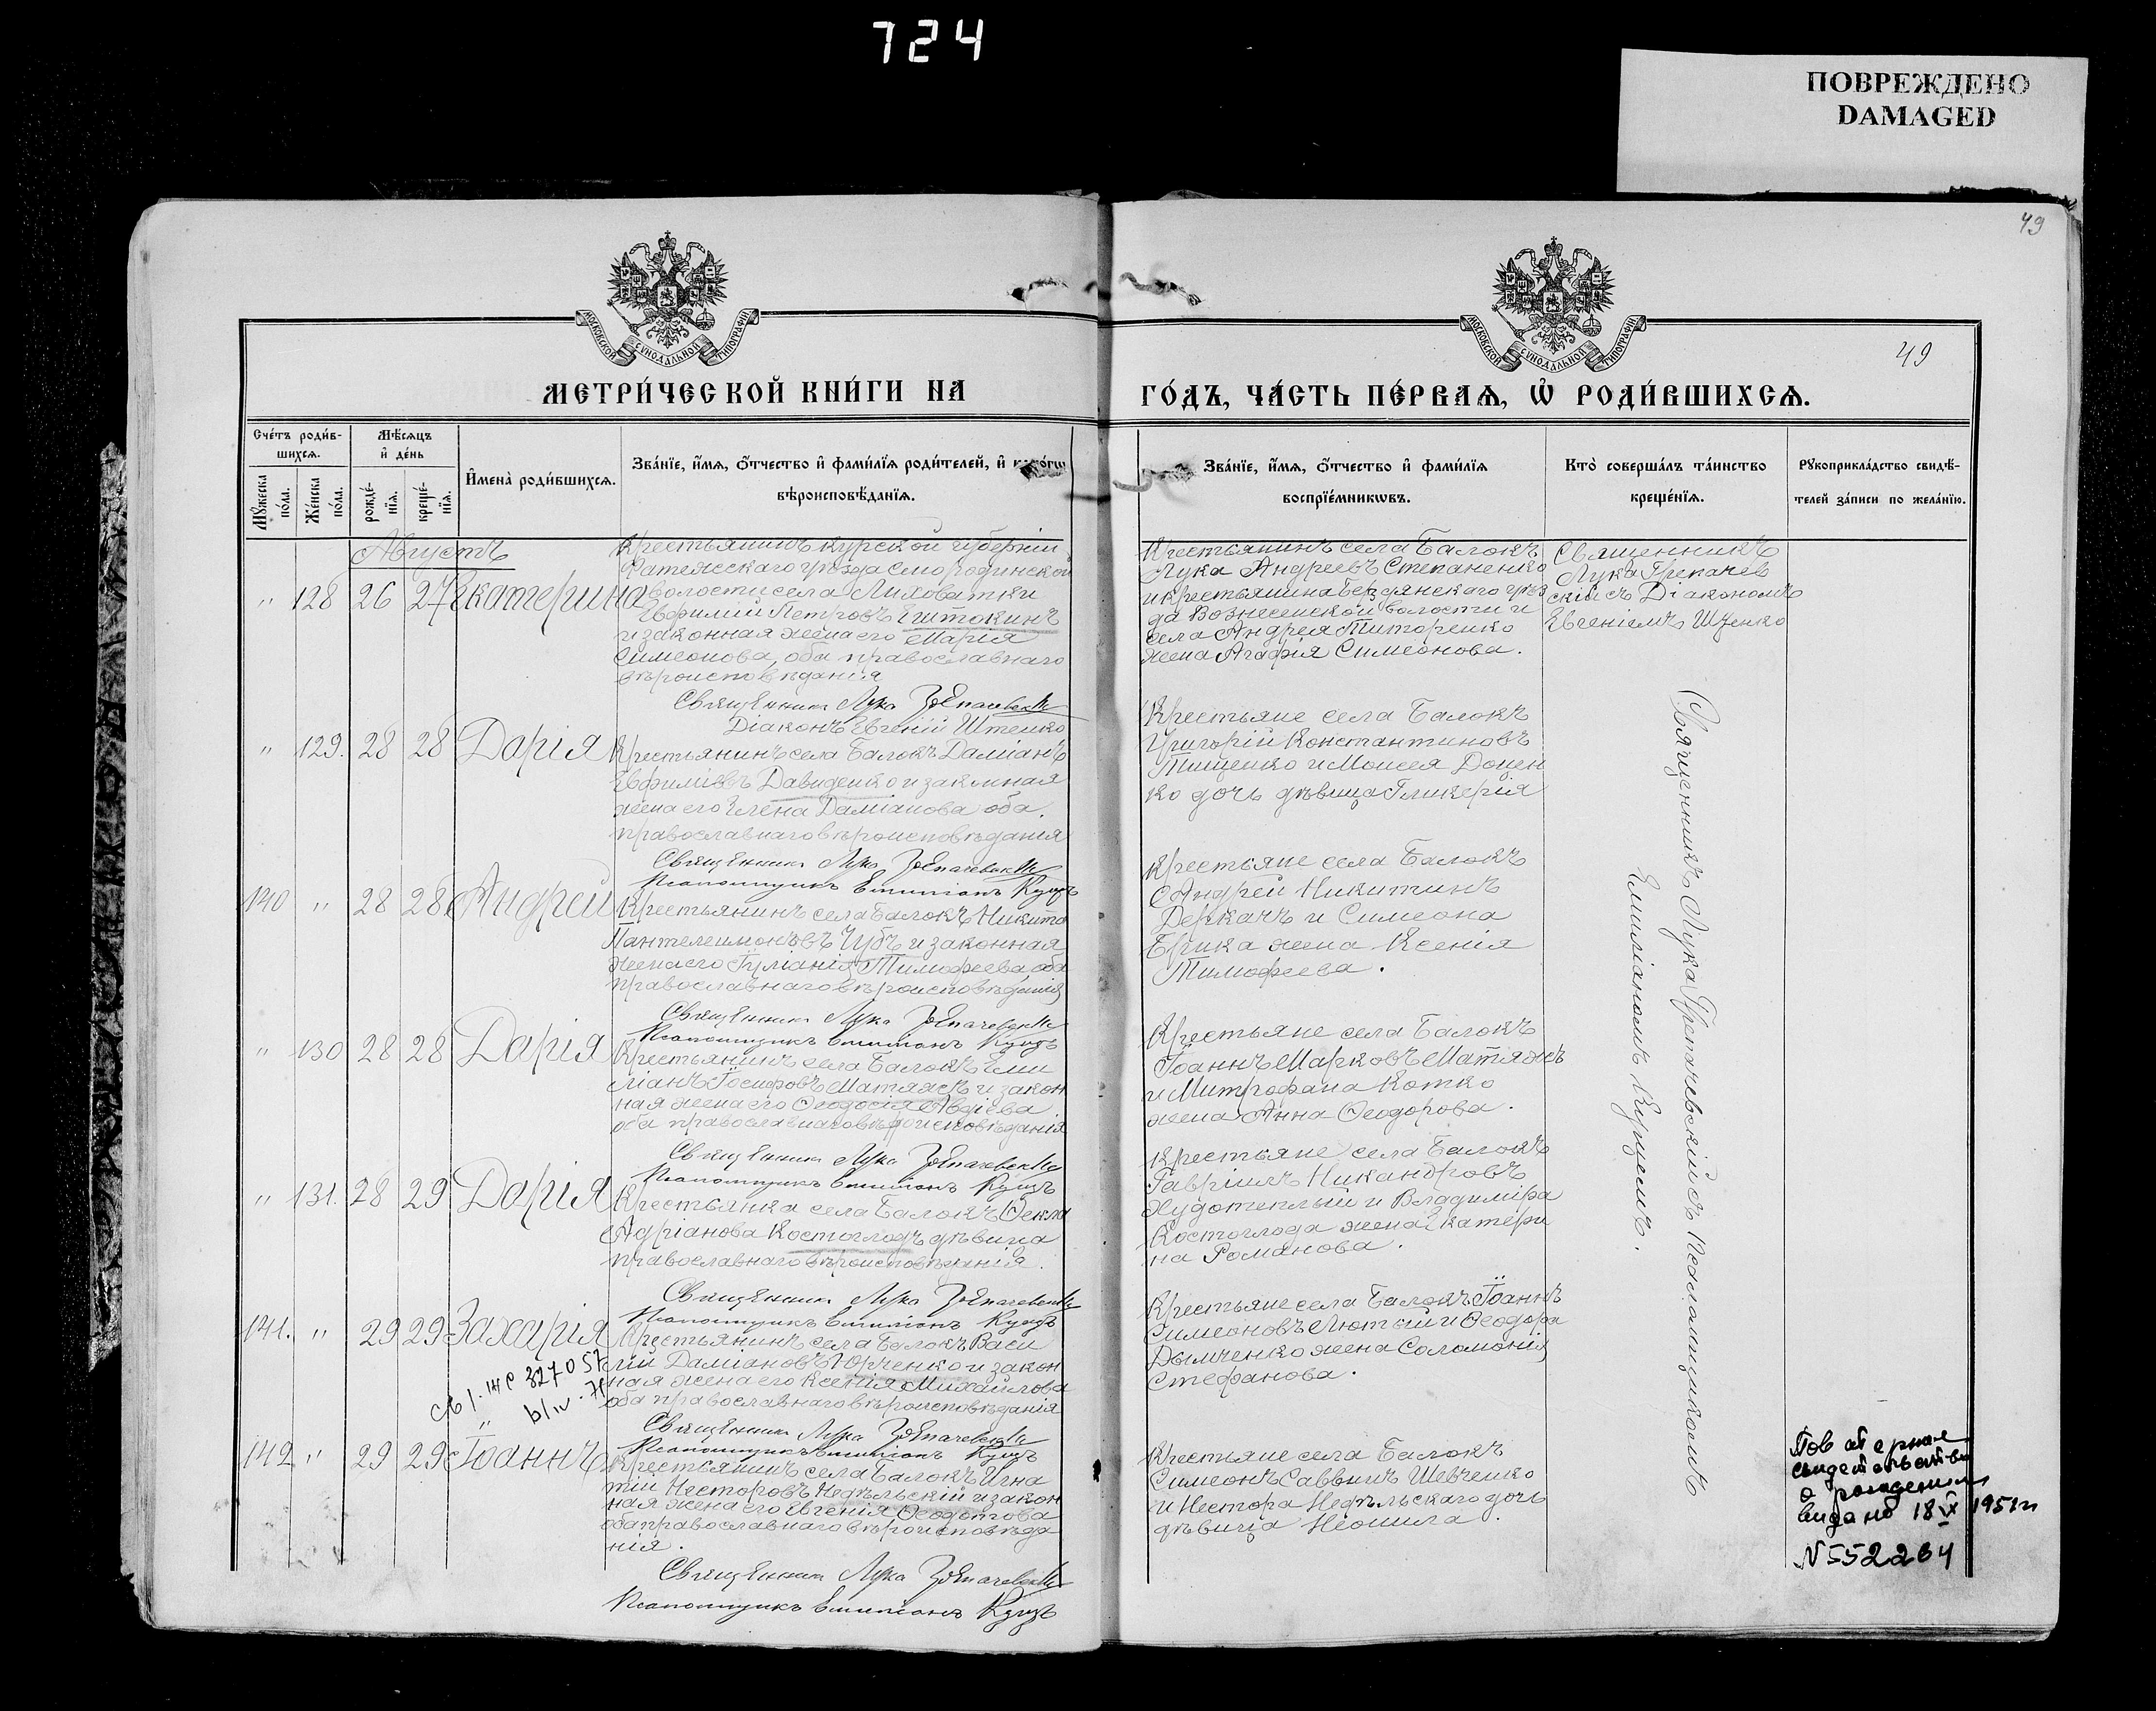 724
ПОВРЕЖДЕНО
DAMAGED
49
МОСКОВСКОЙ СѴНОДАЛЬНОЙ ТИПОГРАФІИ
МОСКОВСКОЙ СѴНОДАЛЬНОЙ ТИПОГРАФІИ
49
МЕТРИ́ЧЕСКОЙ КНИ́ГИ НА
ГО́ДЪ, ЧА́СТЬ ПЕ́РВАѦ, Ѡ҆ РОДИ́ВШИХСѦ.
Сче́тъ роди́в-
шихсѧ.
Мꙋ́жеска по́ла.
Же́нска по́ла.
Мѣ́сѧцъ
и҆ де́нь
рожде́-
нїѧ.
креще́-
нїѧ.
И҆мена̀ роди́вшихсѧ.
Зва́нїе, и҆́мѧ, ѻ҆́тчество и҆ фами́лїѧ роди́телей, и҆
вѣроисповѣ́данїѧ.
Зва́нїе, и҆́мѧ, ѻ҆́тчество и҆ фами́лїѧ
воспрїе́мникѡвъ.
Кто̀ соверша́лъ та́инство
креще́нїѧ.
Рꙋкоприкла́дство свидѣ́-
телей за́писи по жела́нїю.
Августъ
" 128 26 27 Екатерина
Крестьянинъ Курской губерніи
Фатежскаго уѣзда Смородинской
волости села Лиховатки
Евфимій Петровъ Ештокинъ
и законная жена его Марія
Симеонова, оба православнаго
вѣроисповѣданія
Священникъ Лука
Діаконъ Евгеній Штенко
Крестьянинъ села Балокъ
Лука Андреевъ Степаненко
и крестьянина Бердянскаго уѣз
да Вознесенской волости и
села Андрея Титоренко
жена Агафія Симеонова.
Священникъ
Лука Грепачев
скій съ Діакономъ
Евгеніемъ Штенко
" 129. 28 28 Дарія
Крестьянинъ села Балокъ Даміанъ
Евфиміевъ Давиденко и законная
жена его Елена Даміанова оба
православнаго вѣроисповѣданія
Священникъ Лука
Псаломщикъ Емиліанъ Кущъ
Крестьяне села Балокъ
Григорій Константиновъ
Тищенко и Моисея Доцен
ко дочь дѣвица Гликерія
140 " 28 28 Андрей
Крестьянинъ села Балокъ Никита
Пантелеимоновъ Чубъ и законная
жена его Іуліанія Тимофеева, оба
православнаго вѣроисповѣданія
Священникъ Лука
Псаломщикъ Емиліанъ Кущъ
Крестьяне села Балокъ
Андрей Никитинъ
Деркачъ и Симеона
Брика жена Ксенія
Тимофеева.
" 130 28 28 Дарія
Крестьянинъ села Балокъ Еми
ліанъ Іосифовъ Матяжъ и закон
ная жена его Ѳеодосія Авдіева
оба православнаго вѣроисповѣданія
Священникъ Лука
Псаломщикъ Емиліанъ Кущъ
Крестьяне села Балокъ
Іоаннъ Марковъ Матяжъ
и Митрофана Котко
жена Анна Ѳеодорова.
" 131. 28 29 Дарія
Крестьянка села Балокъ Ѳекла
Адріанова Костоглодъ дѣвица
православнаго вѣроисповѣданія.
Священникъ Лука
Псаломщикъ Емиліанъ Кущъ
Крестьяне села Балокъ
Гавріилъ Никандровъ
Худотеплый и Владиміра
Костоглода жена Екатери
на Романова.
141. " 29 29 Захарія
Крестьянинъ села Балокъ Васи
лій Даміановъ Юрченко и закон
ная жена его Ксенія Михайлова
оба православнаго вѣроисповѣданія
Священникъ Лука
Псаломщикъ Емиліанъ Кущъ
Крестьяне села Балокъ Іоаннъ
Симеоновъ Лютый и Ѳеодора
Дымченко жена Соломонія
Стефанова.
327057
142 " 29 29 Іоаннъ
Крестьянинъ села Балокъ Игна
тій Несторовъ Недѣльскій и закон
ная жена его Евгенія Ѳеодотова
оба православнаго вѣроисповѣда
нія.
Священникъ Лука
Псаломщикъ Емиліанъ Кущъ
Крестьяне села Балокъ
Симеонъ Саввинъ Шевченко
и Нестора Недѣльскаго дочь
дѣвица Неонила.
Священникъ Лука Грепачевскій съ Псаломщикомъ
Емиліаномъ Кущемъ.
Повторное
свидетельство
о рождении
выдано 18 1951г
N 552264